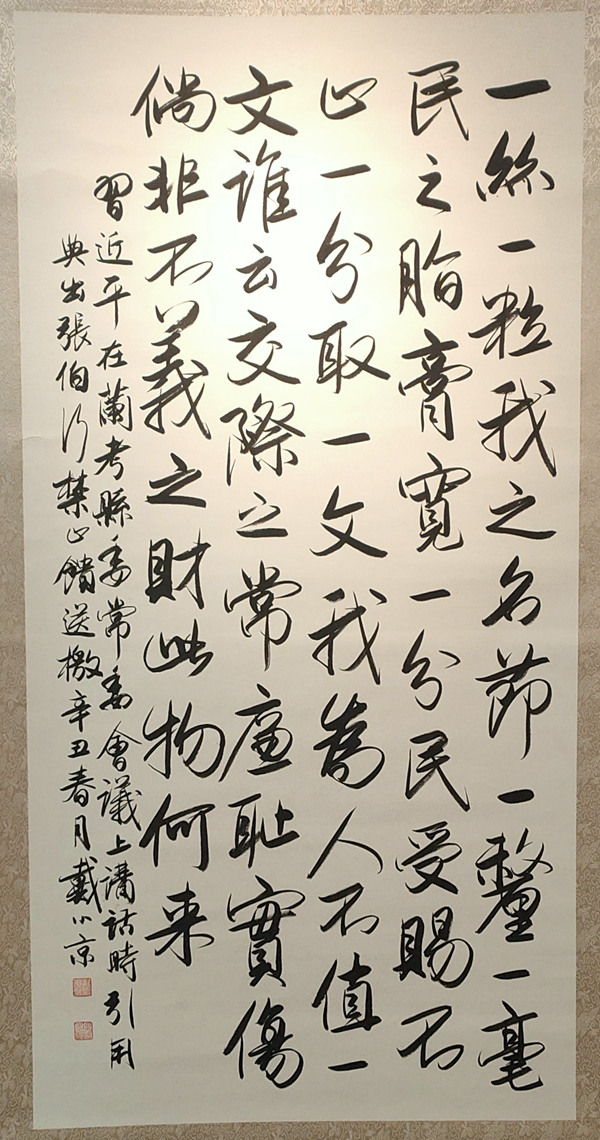 一絲一粒我之名節一釐一毫
民之脂膏寬一分民受賜不
止一分取一文我為人不值一
文誰云交際之常廉恥實傷
倘非不義之財此物何来
習近平在蘭考縣委常委會議上講話時引用
典出張伯行禁止饋送檄辛丑春月戴小京